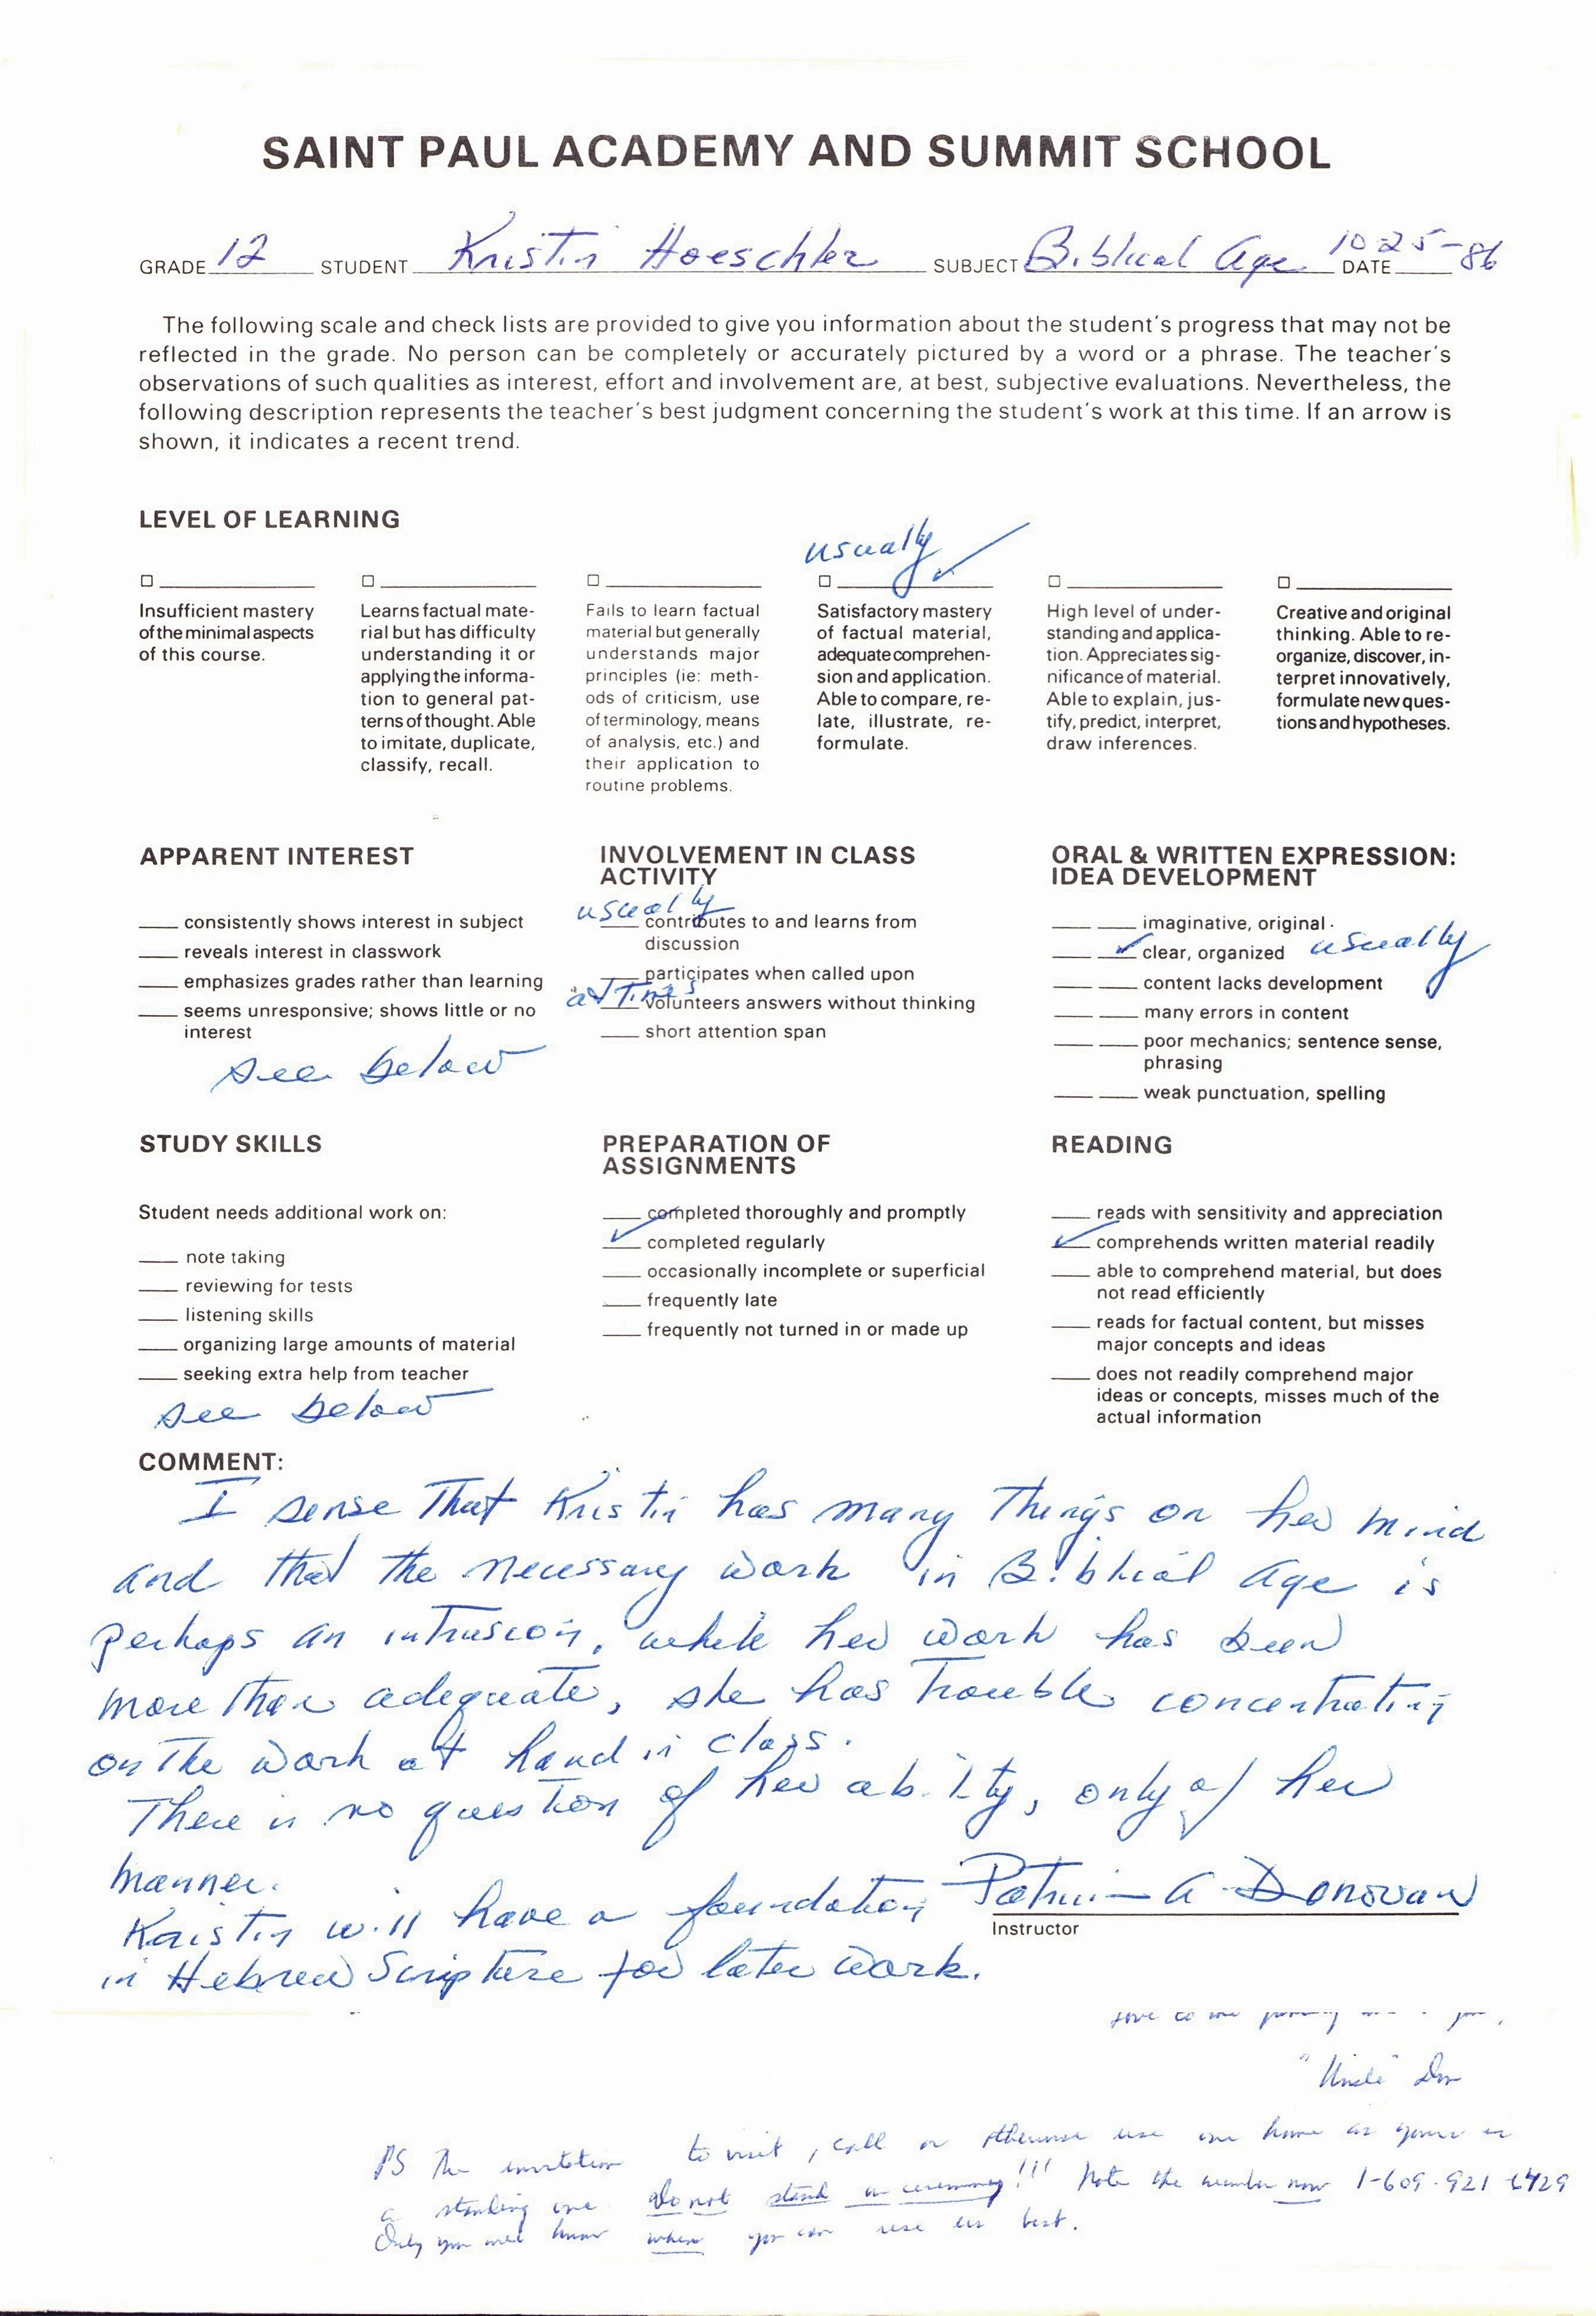 SAINT PAUL ACADEMY AND SUMMIT SCHOOL
GRADE 12 STUDENT Kristin Hoeschler SUBJECT Biblical Age DATE 10-25-86
The following scale and check lists are provided to give you information about the student's progress that may not be
reflected in the grade. No person can be completely or accurately pictured by a word or a phrase. The teacher's
observations of such qualities as interest, effort and involvement are, at best, subjective evaluations. Nevertheless, the
following description represents the teacher's best judgment concerning the student's work at this time. If an arrow is
shown, it indicates a recent trend.
LEVEL OF LEARNING
usually ✓
Insufficient mastery
of the minimal aspects
of this course.
Learns factual mate-
rial but has difficulty
understanding it or
applying the informa-
tion to general pat-
terns of thought. Able
to imitate, duplicate,
classify, recall.
Fails to learn factual
material but generally
understands major
principles (ie: meth-
ods of criticism, use
of terminology, means
of analysis, etc.) and
their application to
routine problems.
Satisfactory mastery
of factual material,
adequate comprehen-
sion and application.
Able to compare, re-
late, illustrate, re-
formulate.
High level of under-
standing and applica-
tion. Appreciates sig-
nificance of material.
Able to explain, jus-
tify, predict, interpret,
draw inferences.
Creative and original
thinking. Able to re-
organize, discover, in-
terpret innovatively,
formulate new ques-
tions and hypotheses.
APPARENT INTEREST
consistently shows interest in subject
reveals interest in classwork
emphasizes grades rather than learning
seems unresponsive; shows little or no
interest
see below
INVOLVEMENT IN CLASS
ACTIVITY
usually contributes to and learns from
discussion
participates when called upon
at Times volunteers answers without thinking
short attention span
ORAL & WRITTEN EXPRESSION:
IDEA DEVELOPMENT
imaginative, original
✓ clear, organized usually
content lacks development
many errors in content
poor mechanics; sentence sense,
phrasing
weak punctuation, spelling
STUDY SKILLS
Student needs additional work on:
note taking
reviewing for tests
listening skills
organizing large amounts of material
seeking extra help from teacher
see below
PREPARATION OF
ASSIGNMENTS
completed thoroughly and promptly
✓ completed regularly
occasionally incomplete or superficial
frequently late
frequently not turned in or made up
READING
reads with sensitivity and appreciation
✓ comprehends written material readily
able to comprehend material, but does
not read efficiently
reads for factual content, but misses
major concepts and ideas
does not readily comprehend major
ideas or concepts, misses much of the
actual information
COMMENT:
I sense That Kristin has many Things on her mind
and that the necessary work in Biblical Age is
perhaps an intrusion, while her work has been
more than adequate, she has trouble concentrating
on The work at hand in class.
There is no question of her ability, only of her
manner.
Kristin will have a foundation
in Hebrew Scripture for later work.
Patricia A Donovan
Instructor
"Uncle" Don
PS The invitation to visit, call or otherwise use our home as yours is
a standing one. Do not stand on ceremony!!! Note the number now 1-609-921-6429
Only you will know when you can use us best.